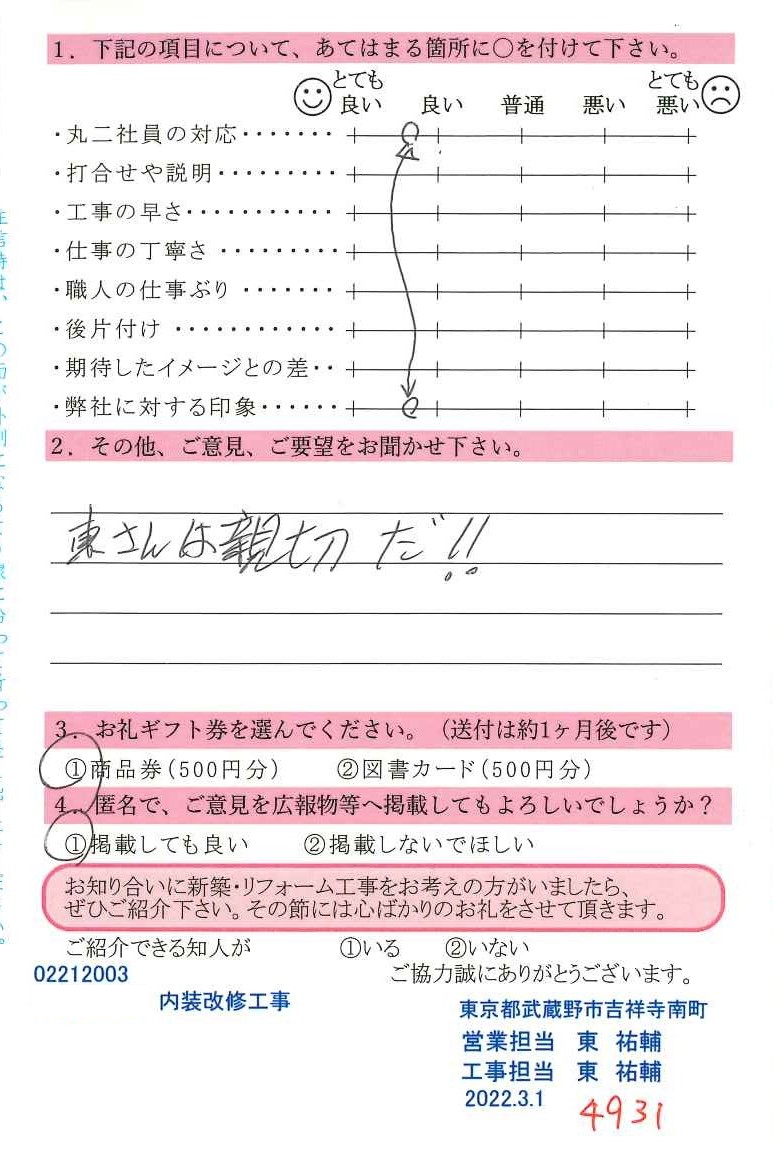 1．下記の項目について、あてはまる箇所に○を付けて下さい。
とても良い 良い 普通 悪い とても悪い
・丸二社員の対応・・・・・・・
・打合せや説明・・・・・・・・・
・工事の早さ・・・・・・・・・・・
・仕事の丁寧さ・・・・・・・・・
・職人の仕事ぶり・・・・・・・
・後片付け・・・・・・・・・・・・
・期待したイメージとの差・・
・弊社に対する印象・・・・・・
2．その他、ご意見、ご要望をお聞かせ下さい。
東さんは親切だ!!
3．お礼ギフト券を選んでください。（送付は約1ヶ月後です）
①商品券（500円分） ②図書カード（500円分）
4．匿名で、ご意見を広報物等へ掲載してもよろしいでしょうか？
①掲載しても良い ②掲載しないでほしい
お知り合いに新築・リフォーム工事をお考えの方がいましたら、
ぜひご紹介下さい。その節には心ばかりのお礼をさせて頂きます。
ご紹介できる知人が ①いる ②いない
ご協力誠にありがとうございます。
02212003
内装改修工事
東京都武蔵野市吉祥寺南町
営業担当 東 祐輔
工事担当 東 祐輔
2022.3.1
4931